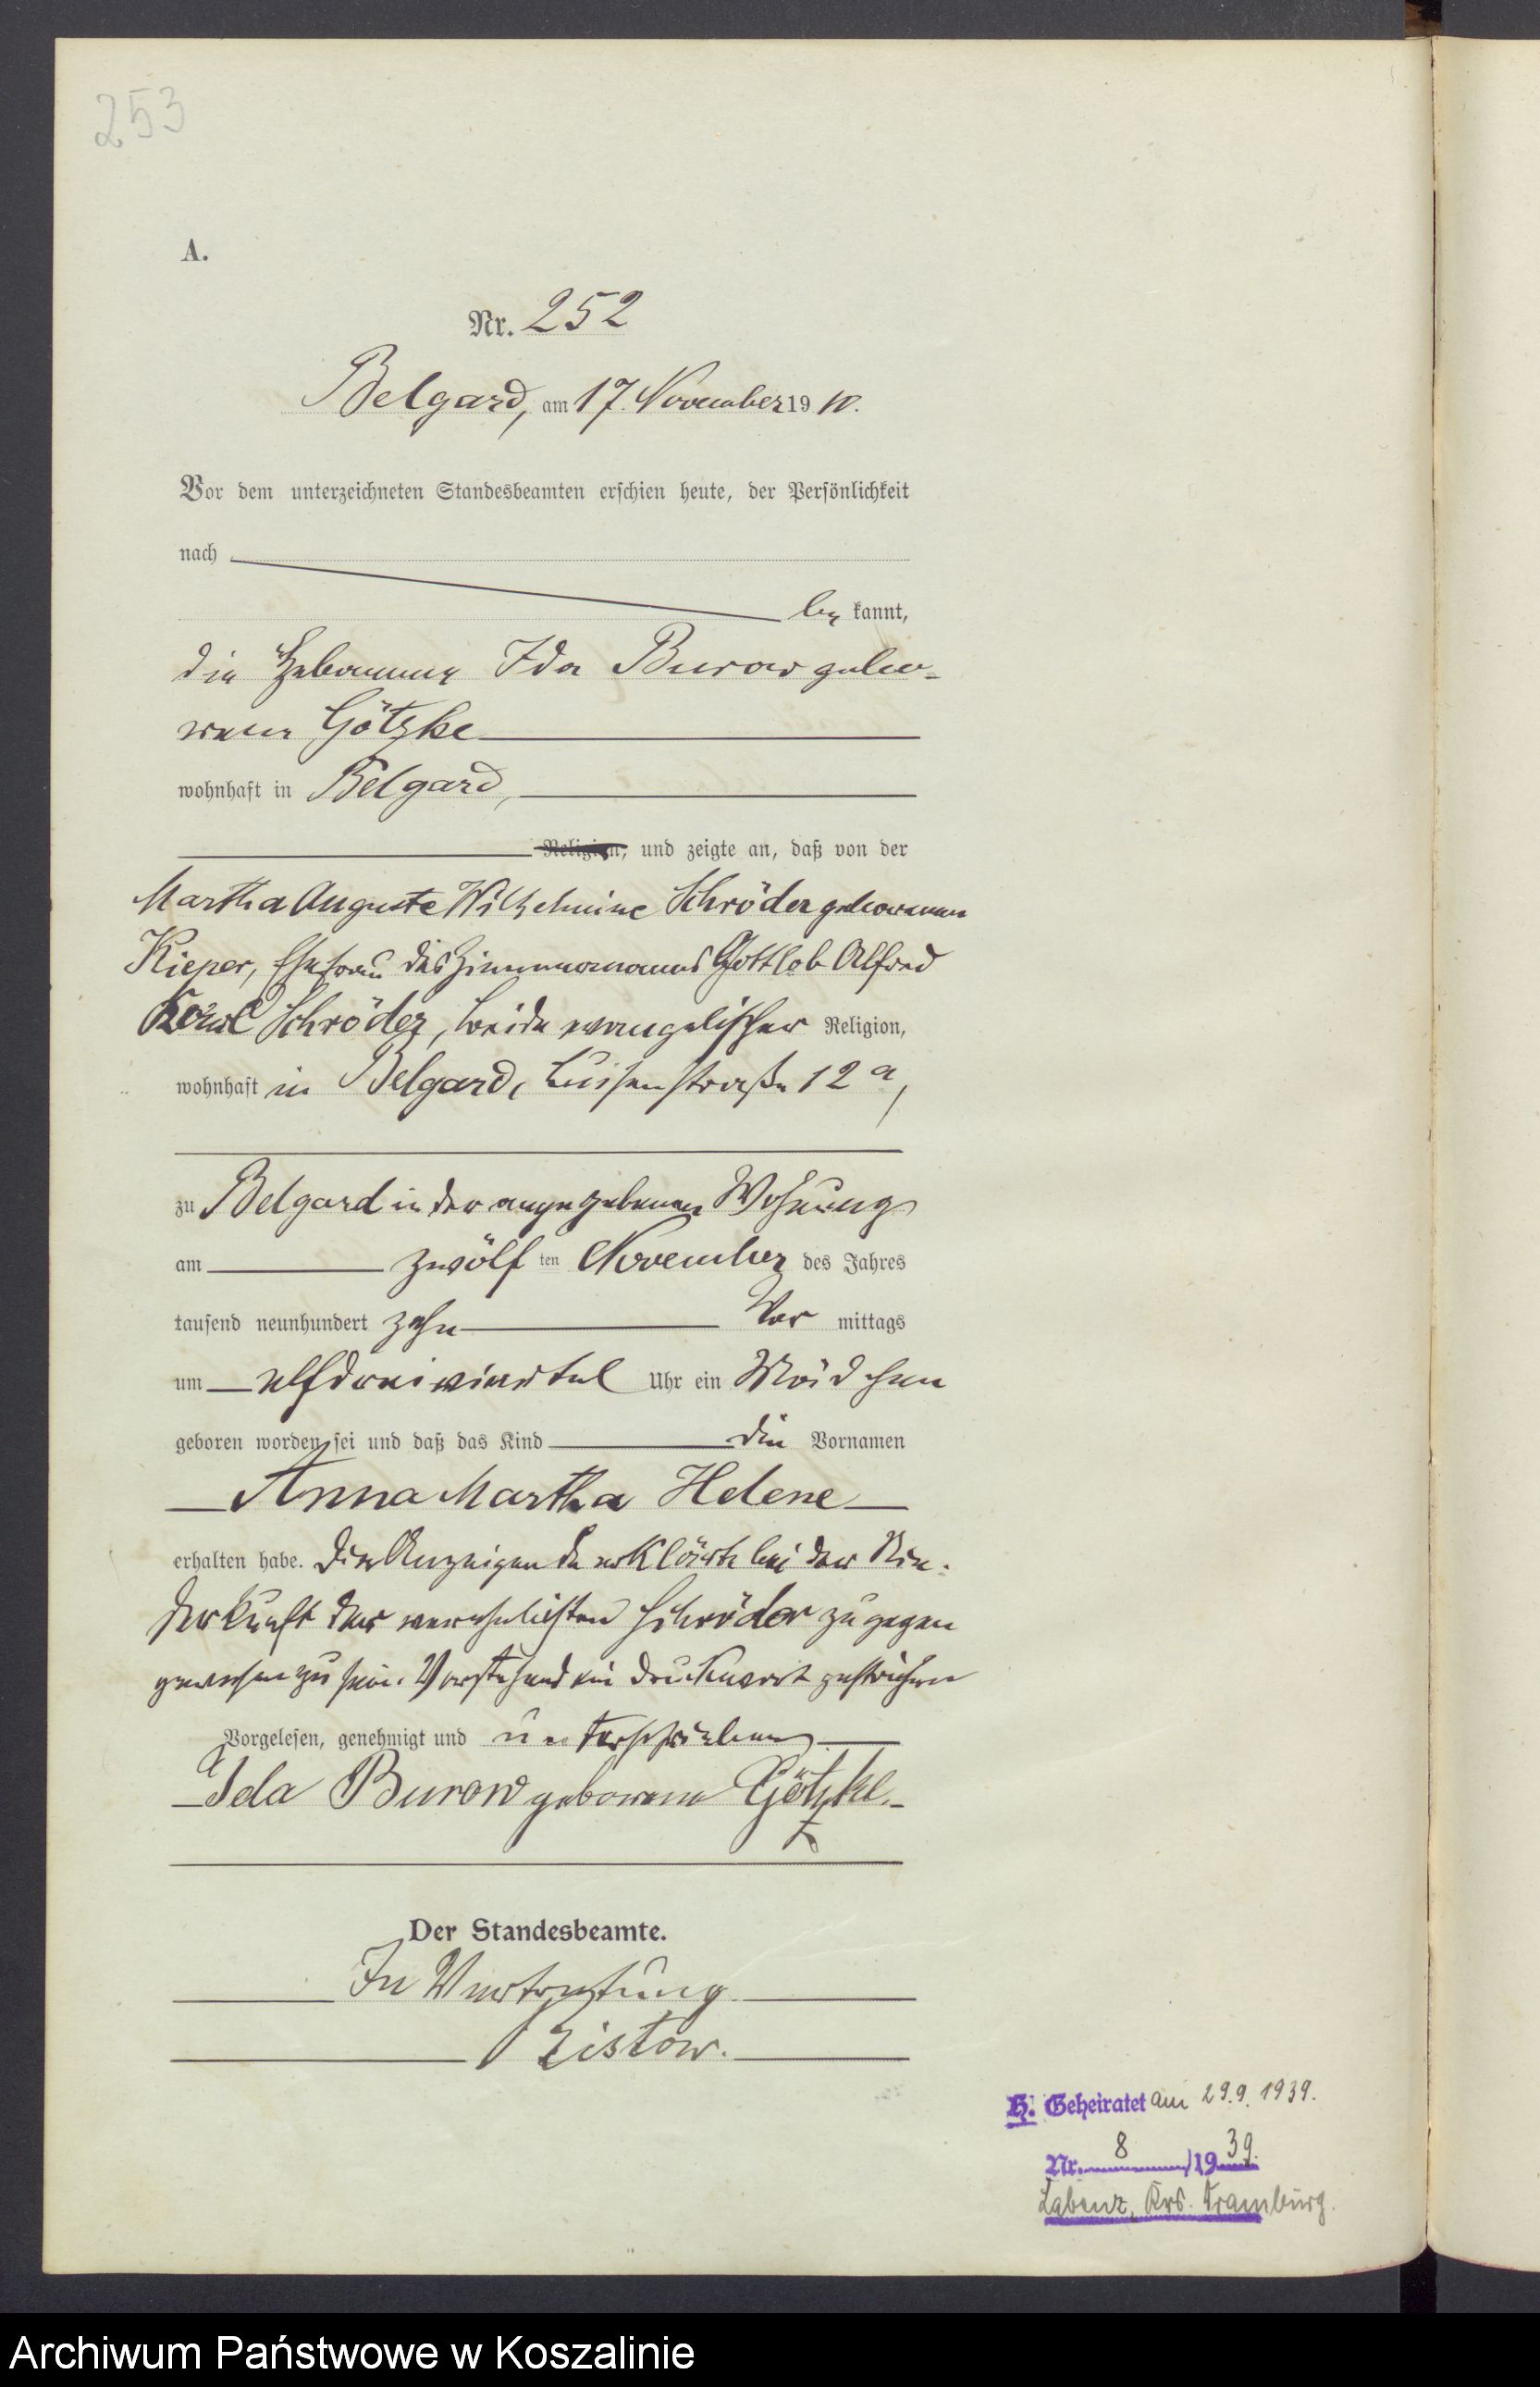 253
A.
Nr. 252
Belgard, am 17. November 19 10.
Vor dem unterzeichneten Standesbeamten erschien heute, der Persönlichkeit
nach
be kannt,
die Hebamme Ida Burow gebo-
rene Götzke
wohnhaft in Belgard,
Religion, und zeigte an, daß von der
Martha Auguste Wilhelmine Schröder geborenen
Kieper, Ehefrau des Zimmermanns Gottlob Alfred
Karl Schröder, beide evangelischer Religion,
wohnhaft in Belgard, Luisenstraße 12 a,
zu Belgard in der angegebenen Wohnung
am zwölf ten November des Jahres
tausend neunhundert zehn Vor mittags
um elfdreiviertel Uhr ein Mädchen
geboren worden sei und daß das Kind die Vornamen
Anna Martha Helene
erhalten habe. Die Anzeigende erklärte bei der Nie-
derkunft der verehelichten Schröder zugegen
gewesen zu sein. Vorstehend ein Druckwort gestrichen
Vorgelesen, genehmigt und unterschrieben
Ida Burow geborene Götzke.
Der Standesbeamte.
In Vertretung
Zistow.
H. Geheiratet am 29.9.1939.
Nr. 8 /1939.
Labenz, Krs. Dramburg.
Archiwum Państwowe w Koszalinie